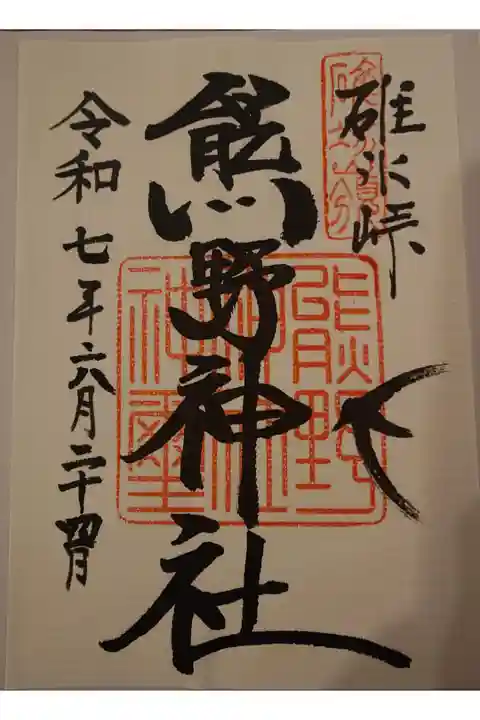 碓氷峠
熊野神社
熊野
神社
神璽
令和七年六月二十四日